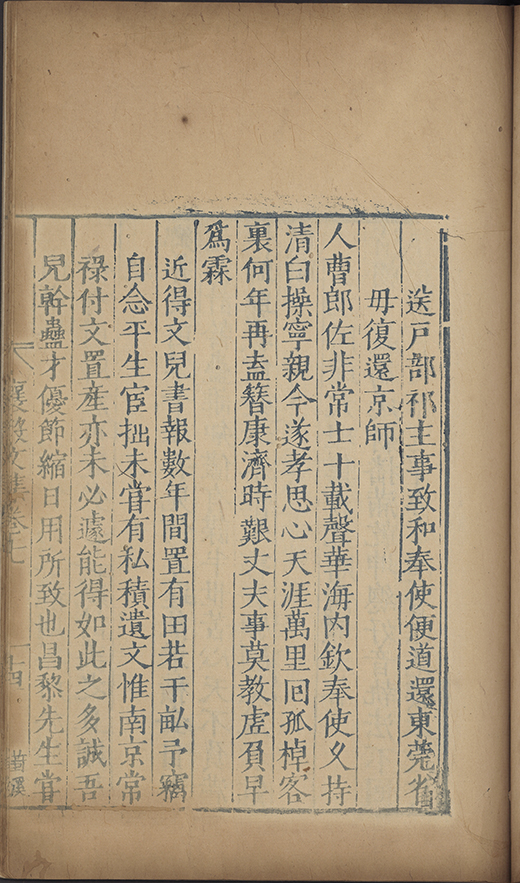 送戶部祁主事致和奉使便道還東莞省
毋復還京師
人曹郎佐非常士十載聲華海内欽奉使久持
清白操寧親今遂孝思心天涯萬里囘孤棹客
裏何年再盍簪康濟時艱丈夫事莫教虛負早
爲霖
近得文兒書報數年間置有田若干畝予竊
自念平生宦拙未嘗有私積遺文惟南京常
祿付文置產亦未必遽能得如此之多誠吾
兒幹蠱才優節縮日用所致也昌黎先生嘗
襄毅文集卷七 十四